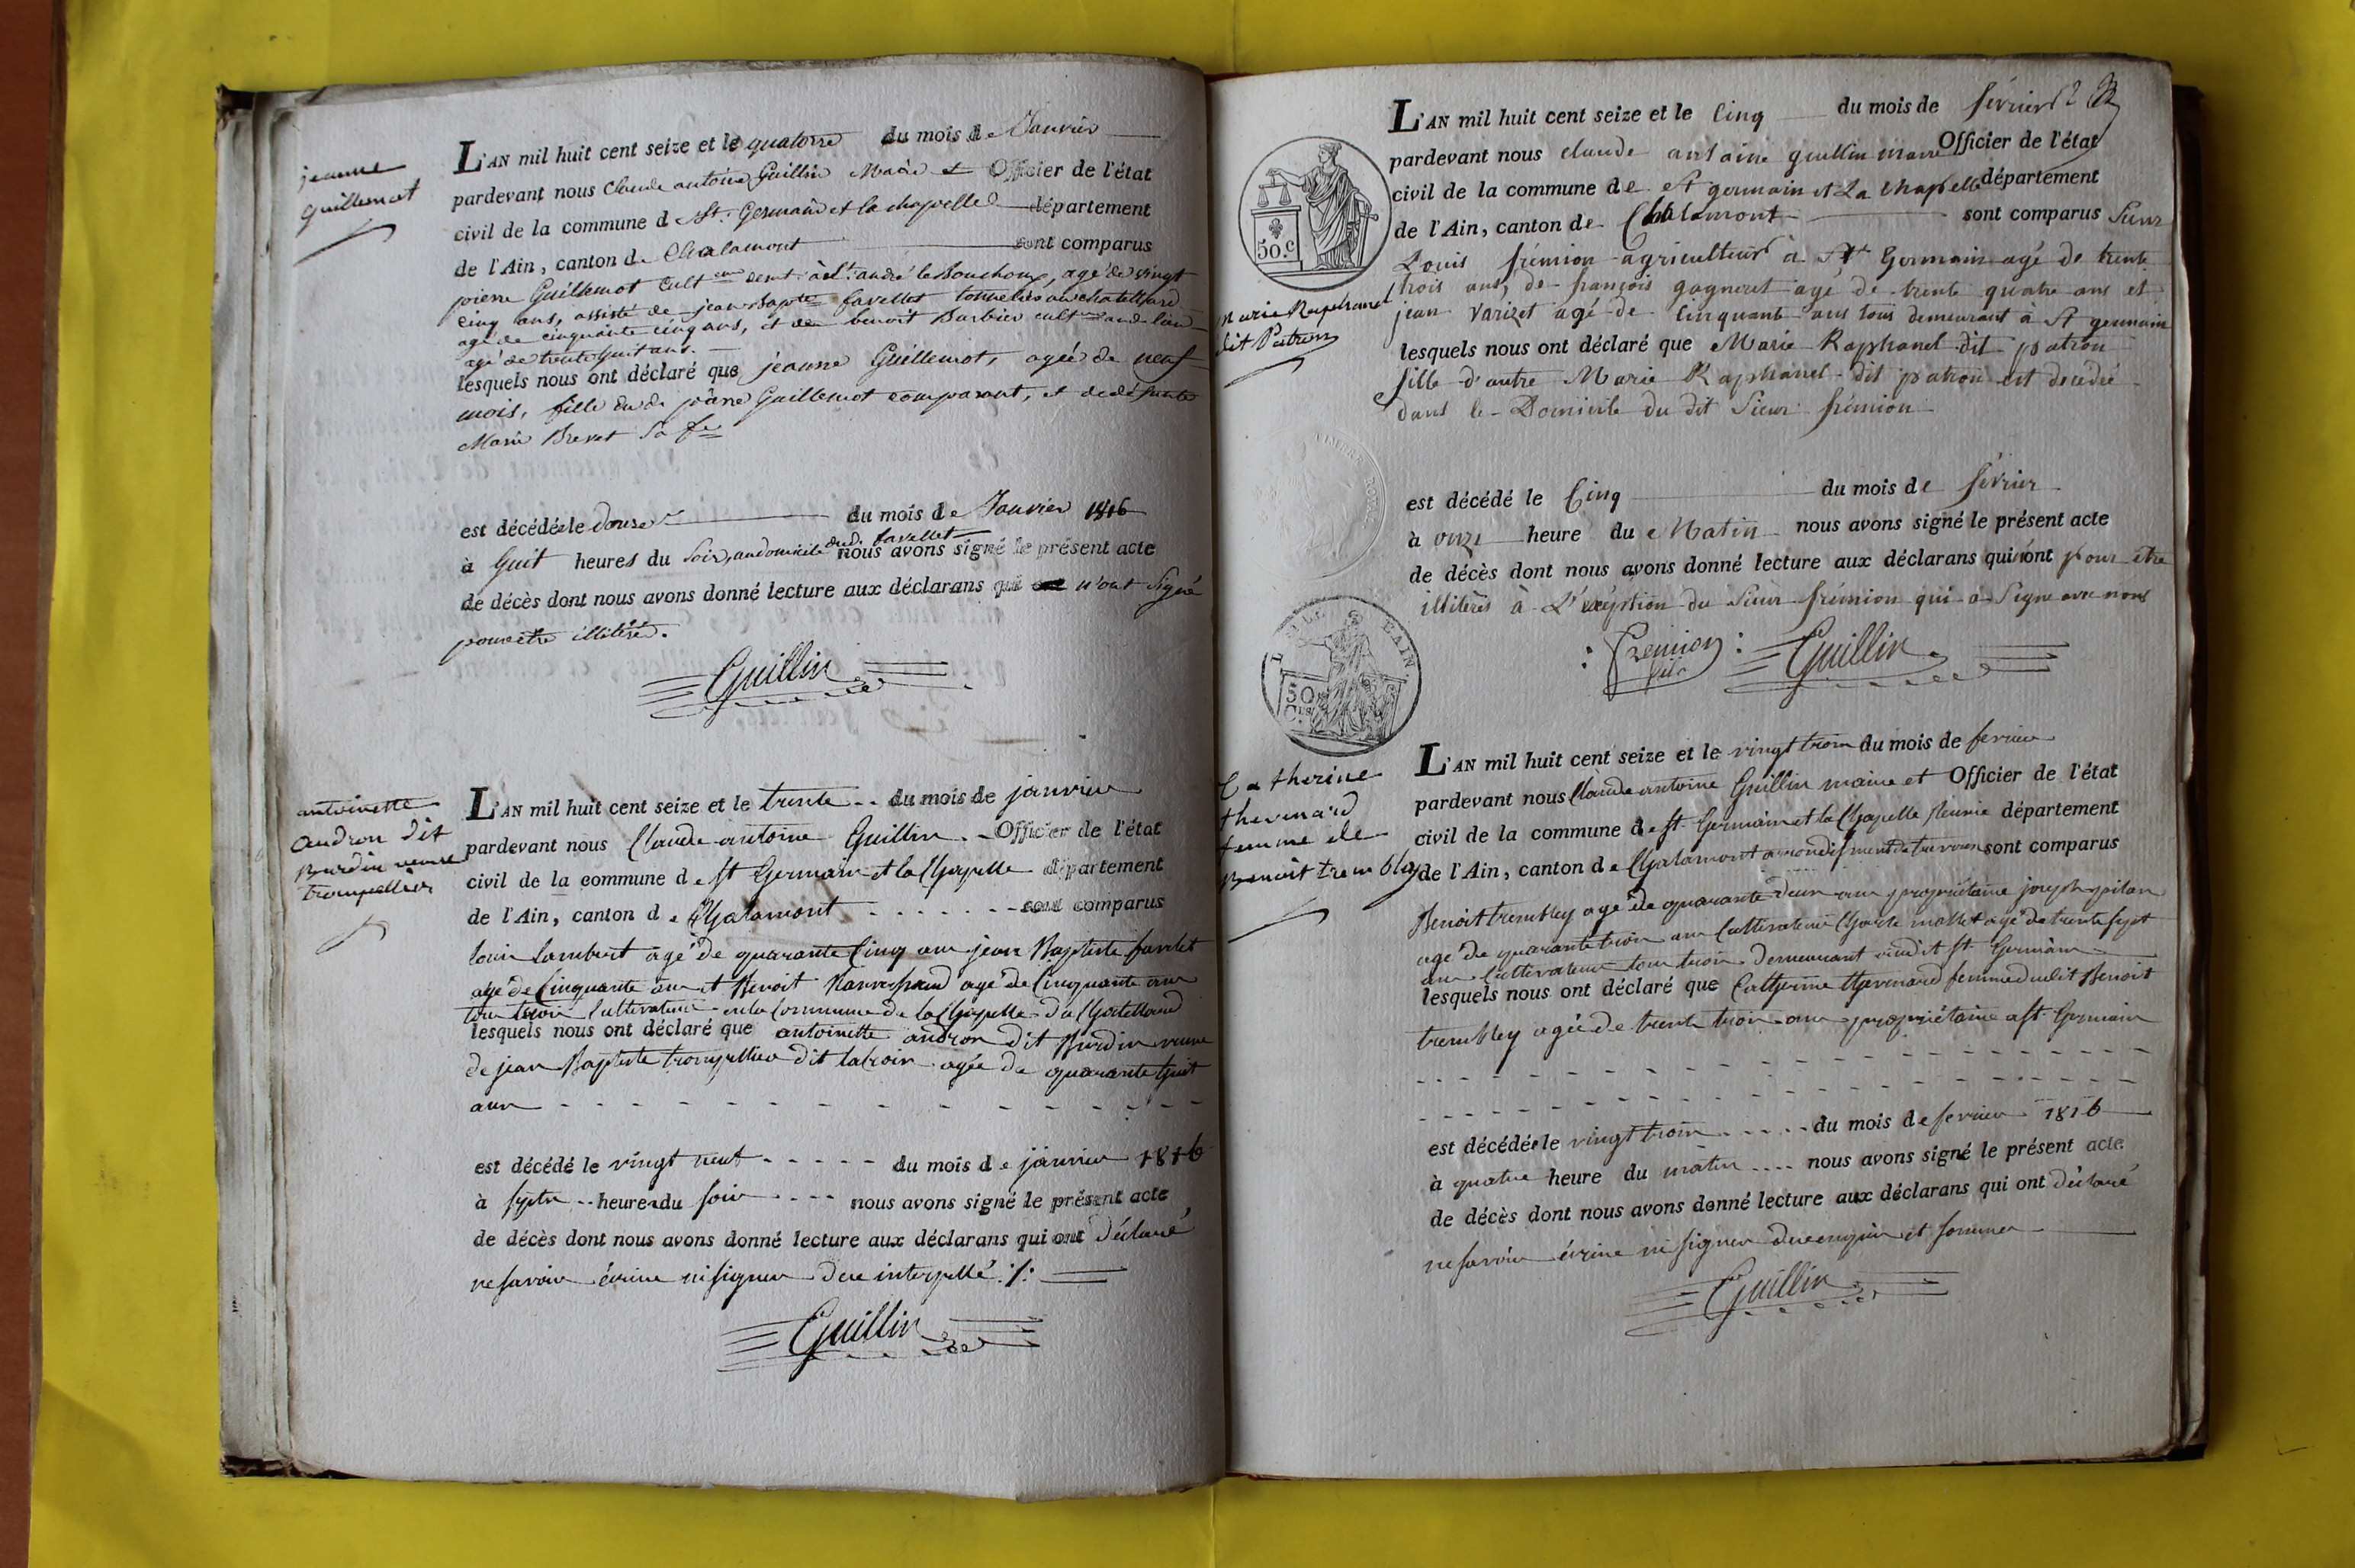 jeanne
guillemot
L'AN mil huit cent seize et le quatorze du mois de Janvier
pardevant nous Claude antoine Guillin Maire et Officier de l'état
civil de la commune de St. Germain et la chapelle département
de l'Ain, canton de Chalamont sont comparus
pierre Guillemot cult.eur demt. à St. andré le Bouchoux, agé de vingt
cinq ans, assisté de jean Bapte. favellet tonnelier au chatellard
agé de cinquante cinq ans, et de benoit Barbier cult.eur
agé de trente huit ans.
lesquels nous ont déclaré que jeanne Guillemot, agée de neuf
mois, fille du d. pierre Guillemot comparant, et de défunte
Marie Brevet Sa fe
est décédée le douze du mois de Janvier 1816
à huit heures du Soir, au domicile dud. favellet nous avons signé le présent acte
de décès dont nous avons donné lecture aux déclarans qui n'ont Signé
pour être illitéré.
Guillin
antoinette
andron dit
Burdin veuve
trompellier
L'AN mil huit cent seize et le trente du mois de janvier
pardevant nous Claude antoine Guillin Officier de l'état
civil de la commune de St Germain et la Chapelle département
de l'Ain, canton de Chalamont sont comparus
louis lambert agé de quarante cinq ans jean Baptiste favelet
agé de cinquante ans et Benoit agé de cinquante ans
tous trois cultivateurs en la commune de la Chapelle du Chatellard
lesquels nous ont déclaré que antoinette andron dit Burdin veuve
de jean Baptiste trompellier dit agée de quarante huit
ans
est décédé le vingt neuf du mois de janvier 1816
à sept heures du soir nous avons signé le présent acte
de décès dont nous avons donné lecture aux déclarans qui ont déclaré
ne savoir écrire ni signer de ce interpellé ./.
Guillin
2
50.c
marie Raphanel
dit Patron
L'AN mil huit cent seize et le Cinq du mois de février
pardevant nous claude antoine guillin maire Officier de l'état
civil de la commune de St germain et La Chapelle département
de l'Ain, canton de Chalamont sont comparus Sieur
Louis frémion agriculteur à St Germain agé de trente
trois ans, de françois gagneret agé de trente quatre ans et
jean Varizet agé de Cinquante ans tous demeurant à St germain
lesquels nous ont déclaré que Marie Raphanel dit patron
fille d'autre Marie Raphanel dit patron est décédée
dans le Domicile du dit Sieur frémion
TIMBRE ROYAL
est décédé le Cinq du mois de février
à onze heure du Matin nous avons signé le présent acte
de décès dont nous avons donné lecture aux déclarans qui n'ont pour être
illiterés à L'exeption du Sieur frémion qui a Signé avec nous
Fremion fils
Guillin
AIN
50
Catherine
thevenard
femme de
Benoit tremblay
L'AN mil huit cent seize et le vingt trois du mois de fevrier
pardevant nous Claude antoine Guillin maire et Officier de l'état
civil de la commune de St Germain et la Chapelle réunie département
de l'Ain, canton de Chalamont arrondissement de trevoux sont comparus
Benoit trembley agé de quarante deux ans propriétaire joseph pitan
agé de quarante trois ans Cultivateur Charle mollet agé de trente sept
ans Cultivateur tous trois demeurant audit St Germain
lesquels nous ont déclaré que Catherine thevenard femme dudit Benoit
trembley agée de trente trois ans propriétaire a St Germain
est décédée le vingt trois du mois de fevrier 1816
à quatre heure du matin nous avons signé le présent acte
de décès dont nous avons donné lecture aux déclarans qui ont déclaré
ne savoir écrire ni signer de ce enquis et sommer
Guillin